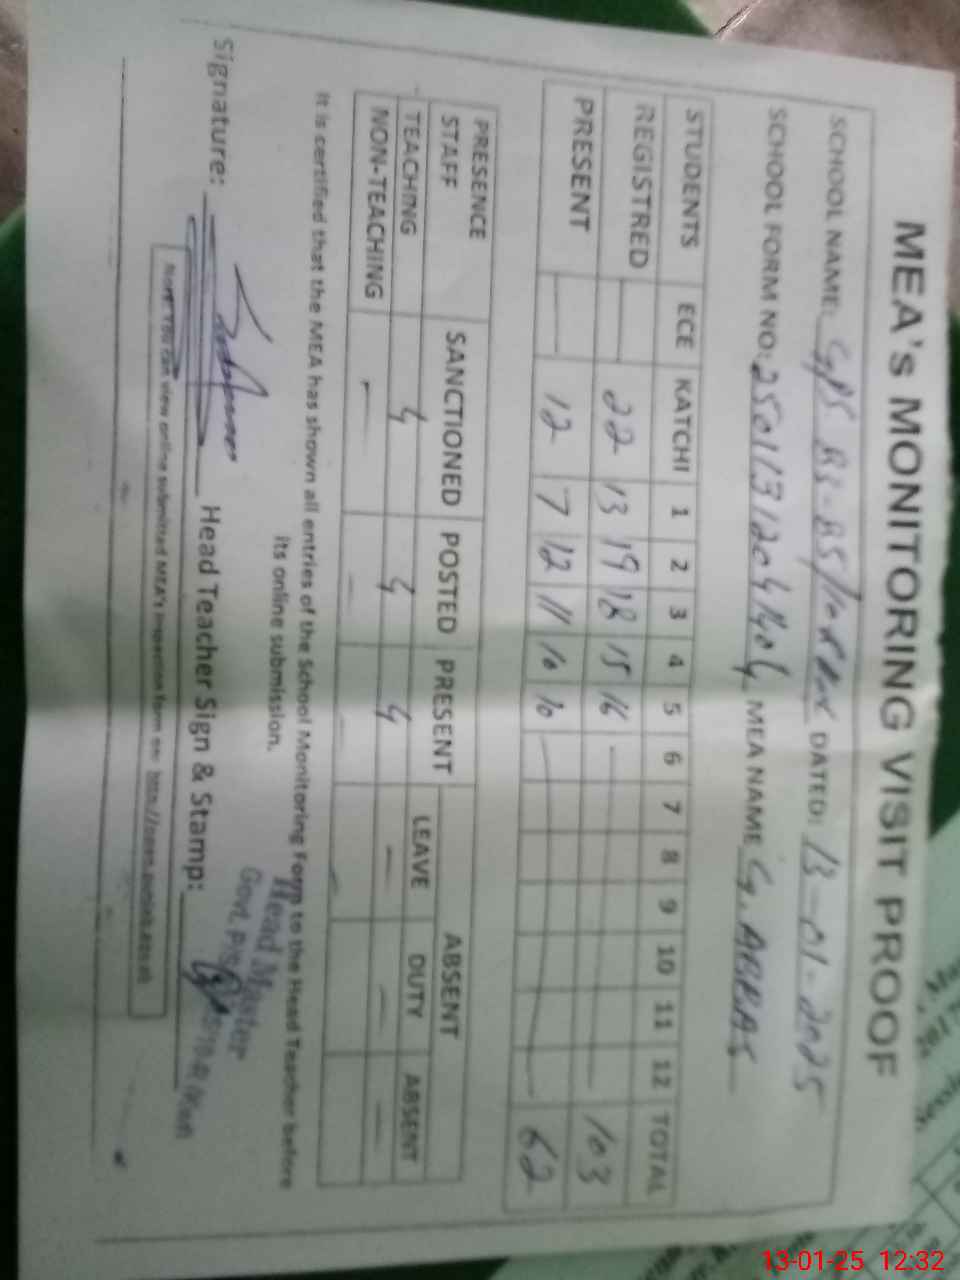 MEA's MONITORING VISIT PROOF
SCHOOL NAME: GPS 83-85/10-R DATED: 13-01-2025
SCHOOL FORM NO: MEA NAME G. ABBAS
STUDENTS ECE KATCHI 1 2 3 4 5 6 7 8 9 10 11 12 TOTAL
REGISTRED — 22 13 19 18 15 16 — 103
PRESENT — 12 7 12 11 10 10 — 62
PRESENCE SANCTIONED POSTED PRESENT ABSENT
STAFF LEAVE DUTY ABSENT
TEACHING 4 4 4 — — —
NON-TEACHING — — — —
It is certified that the MEA has shown all entries of the School Monitoring Form to the Head Teacher before
its online submission.
Signature: Head Teacher Sign & Stamp:
Head Master
Govt. P/S
Note: You can view online submitted MEA's inspection form on:
2017
Sessi
13-01-25 12:32